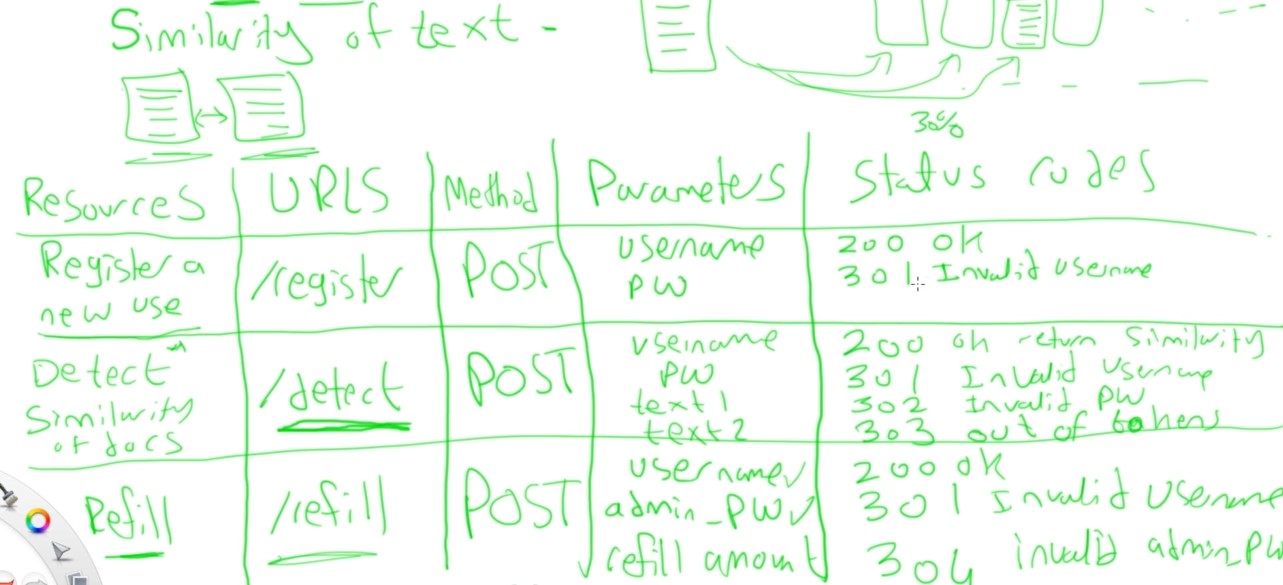 Similarity of text -
30%
Resources URLS Method Parameters Status codes
Register a new use /register POST username PW 200 OK 301 Invalid username
Detect Similarity of docs /detect POST username PW text1 text2 200 OK return Similarity 301 Invalid Username 302 Invalid PW 303 out of tokens
Refill /refill POST username admin_PW refill amount 200 OK 301 Invalid Username 304 invalid admin_PW